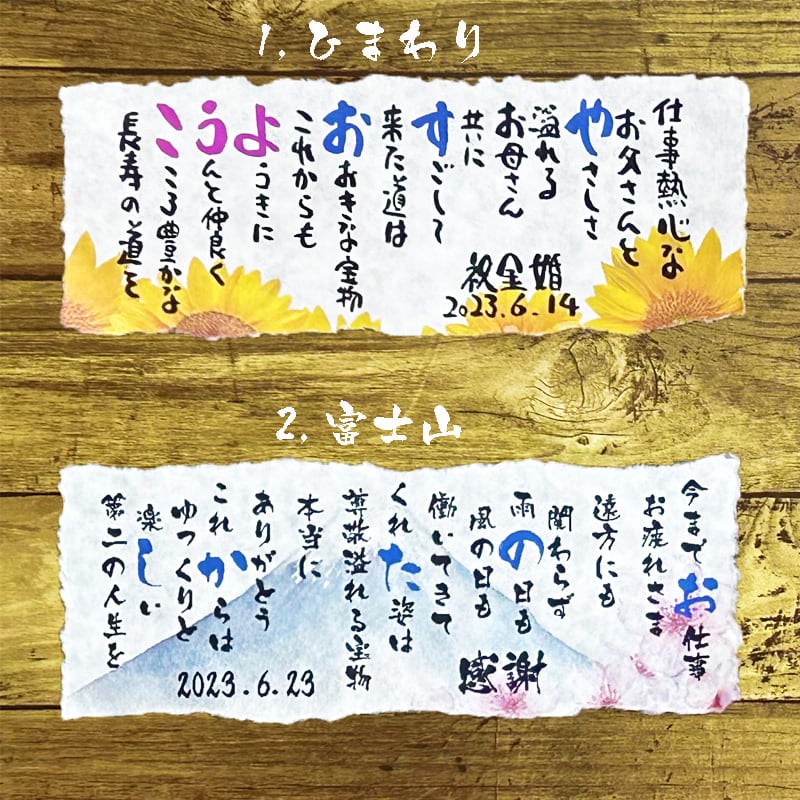 1,ひまわり
仕事熱心な
お父さんと
やさしさ
溢れる
お母さん
共に
すごして
来た道は
おおきな宝物
これからも
ようきに
うんと仲良く
こころ豊かな
長寿の道を
祝金婚
2023.6.14
2,富士山
今までお仕事
お疲れさま
遠方にも
関わらず
雨の日も
風の日も
働いてきて
くれた姿は
尊敬溢れる宝物
本当に
ありがとう
これからは
ゆっくりと
楽しい
第二の人生を
感謝
2023.6.23